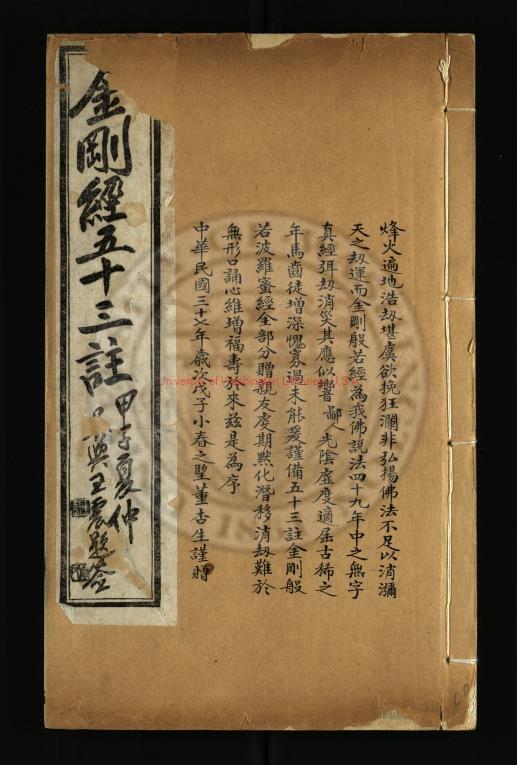 金剛經五十三註
甲子夏仲
興王震題簽
烽火遍地浩劫堪虞欲挽狂瀾非弘揚佛法不足以消瀰
天之劫運而金剛般若經為我佛説法四十九年中之無字
真經弭劫消災其應似響鄙人光陰虛度適屆古稀之
年馬齒徒增深愧寡過未能爰謹備五十三註金剛般
若波羅蜜經全部分贈親友庶期黙化潛移消劫難於
無形口誦心維增福壽於來茲是為序
中華民國三十七年歲次戊子小春之望董杏生謹贈
University of Washington Libraries, U.S.A.